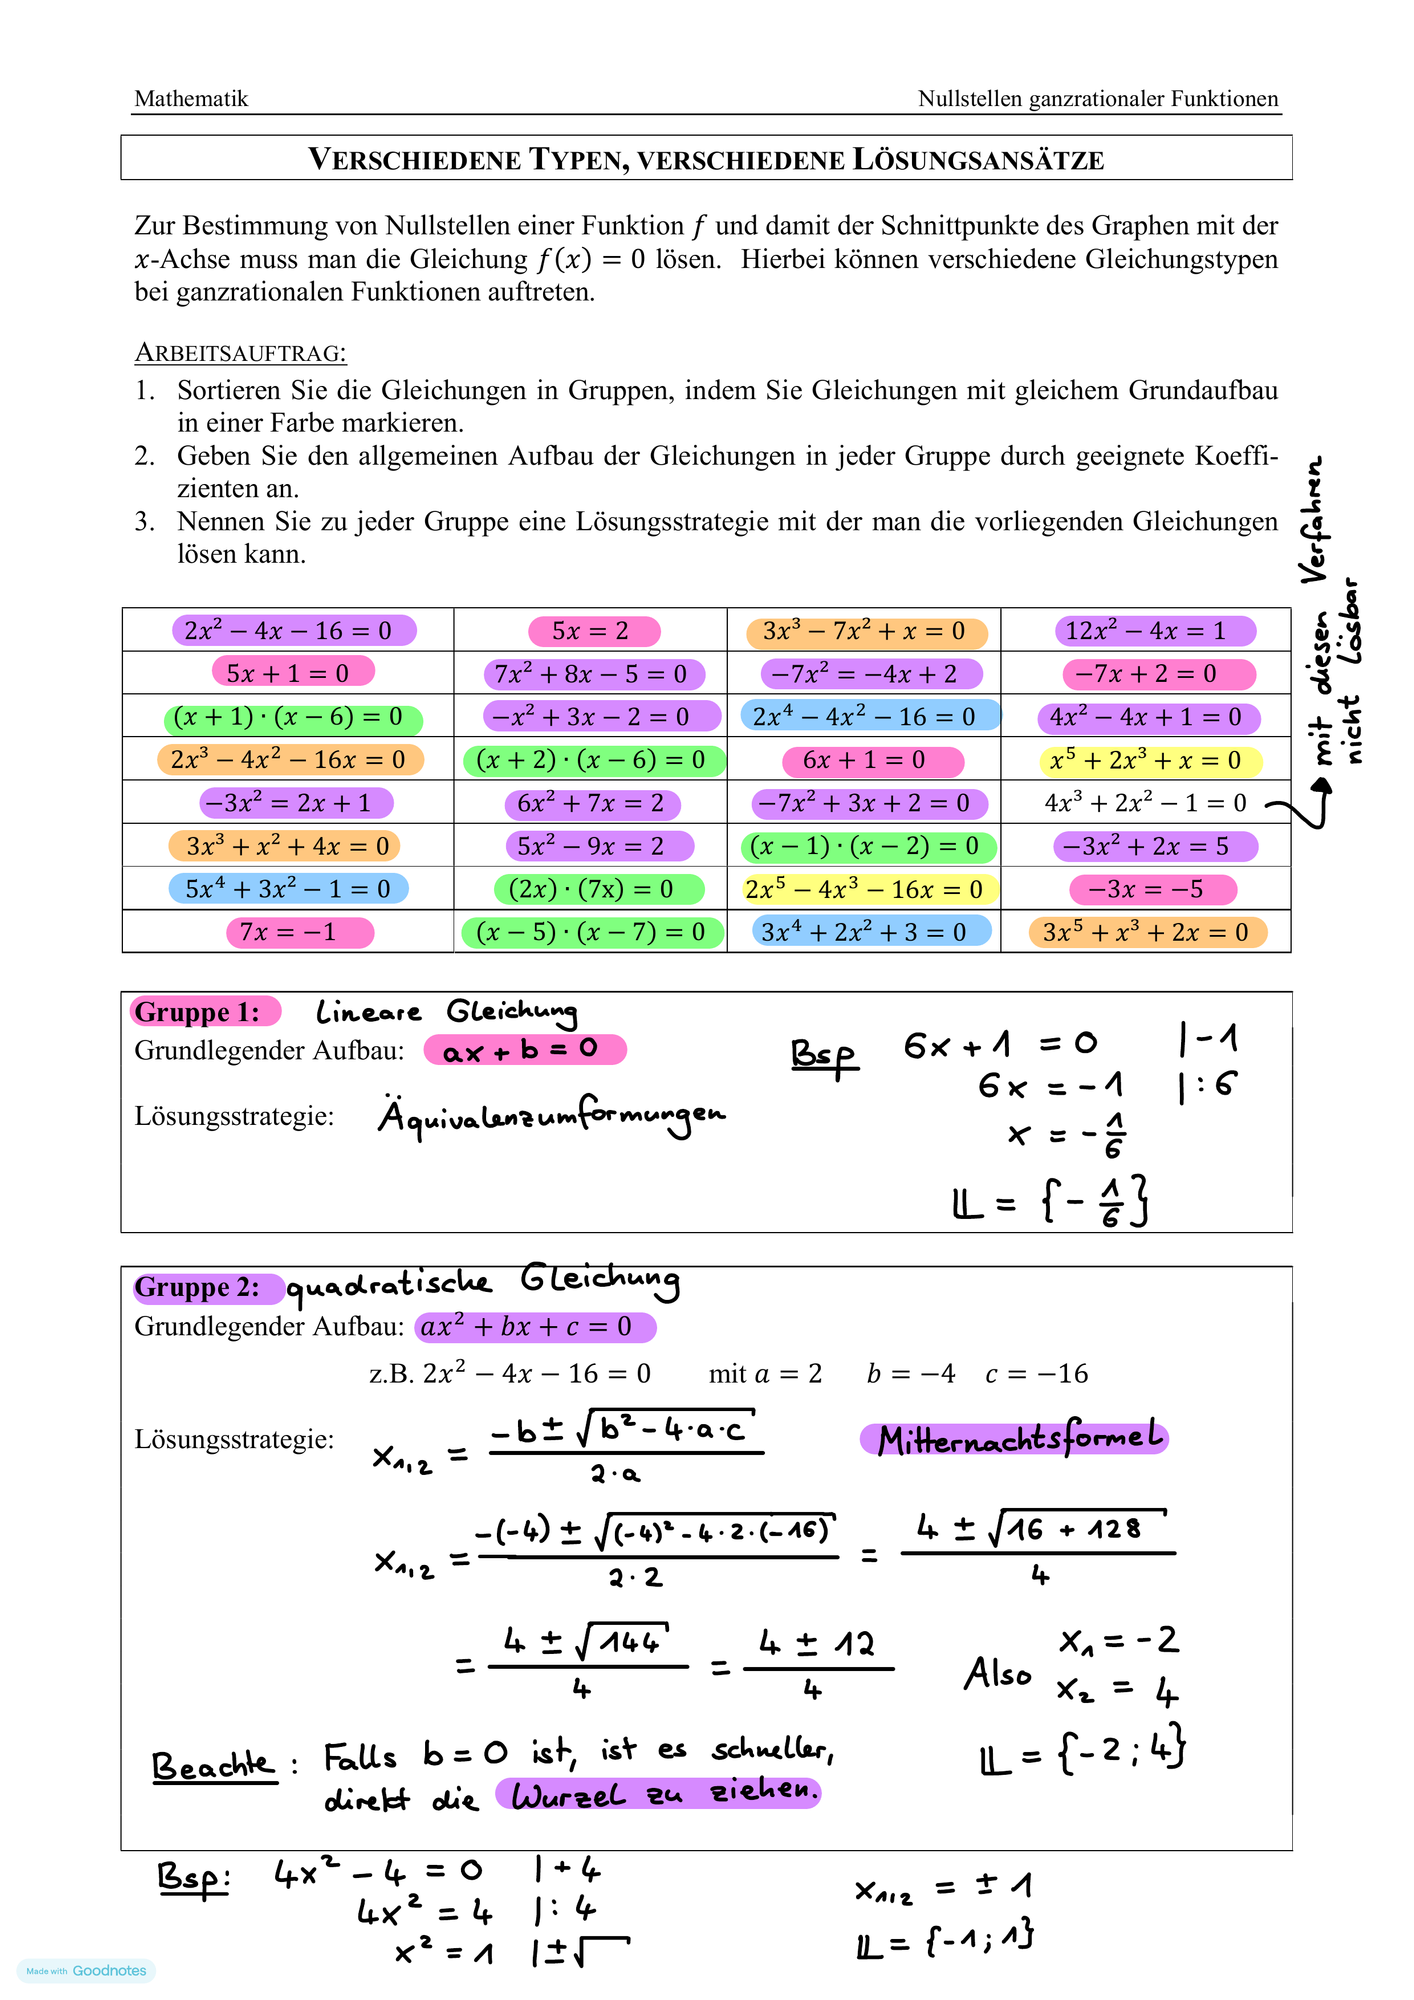 Mathematik Nullstellen ganzrationaler Funktionen
VERSCHIEDENE TYPEN, VERSCHIEDENE LÖSUNGSANSÄTZE
Zur Bestimmung von Nullstellen einer Funktion f und damit der Schnittpunkte des Graphen mit der
x-Achse muss man die Gleichung f(x) = 0 lösen. Hierbei können verschiedene Gleichungstypen
bei ganzrationalen Funktionen auftreten.
ARBEITSAUFTRAG:
1. Sortieren Sie die Gleichungen in Gruppen, indem Sie Gleichungen mit gleichem Grundaufbau
in einer Farbe markieren.
2. Geben Sie den allgemeinen Aufbau der Gleichungen in jeder Gruppe durch geeignete Koeffi-
zienten an.
3. Nennen Sie zu jeder Gruppe eine Lösungsstrategie mit der man die vorliegenden Gleichungen
lösen kann.
2x² − 4x − 16 = 0 5x = 2 3x³ − 7x² + x = 0 12x² − 4x = 1
5x + 1 = 0 7x² + 8x − 5 = 0 −7x² = −4x + 2 −7x + 2 = 0
(x + 1) · (x − 6) = 0 −x² + 3x − 2 = 0 2x⁴ − 4x² − 16 = 0 4x² − 4x + 1 = 0
2x³ − 4x² − 16x = 0 (x + 2) · (x − 6) = 0 6x + 1 = 0 x⁵ + 2x³ + x = 0
−3x² = 2x + 1 6x² + 7x = 2 −7x² + 3x + 2 = 0 4x³ + 2x² − 1 = 0
3x³ + x² + 4x = 0 5x² − 9x = 2 (x − 1) · (x − 2) = 0 −3x² + 2x = 5
5x⁴ + 3x² − 1 = 0 (2x) · (7x) = 0 2x⁵ − 4x³ − 16x = 0 −3x = −5
7x = −1 (x − 5) · (x − 7) = 0 3x⁴ + 2x² + 3 = 0 3x⁵ + x³ + 2x = 0
mit diesen Verfahren
nicht Lösbar
Gruppe 1: Lineare Gleichung
Grundlegender Aufbau: ax + b = 0
Lösungsstrategie: Äquivalenzumformungen
Bsp 6x + 1 = 0 | −1
6x = −1 | : 6
x = −1/6
𝕃 = {−1/6}
Gruppe 2: quadratische Gleichung
Grundlegender Aufbau: ax² + bx + c = 0
z.B. 2x² − 4x − 16 = 0 mit a = 2 b = −4 c = −16
Lösungsstrategie: x₁,₂ = (−b ± √(b² − 4·a·c)) / (2·a) Mitternachtsformel
x₁,₂ = (−(−4) ± √((−4)² − 4·2·(−16))) / (2·2) = (4 ± √(16 + 128)) / 4
= (4 ± √144) / 4 = (4 ± 12) / 4 Also x₁ = −2
x₂ = 4
𝕃 = {−2 ; 4}
Beachte : Falls b = 0 ist, ist es schneller,
direkt die Wurzel zu ziehen.
Bsp: 4x² − 4 = 0 | + 4
4x² = 4 | : 4
x² = 1 | ±√
x₁,₂ = ± 1
𝕃 = {−1 ; 1}
Made with Goodnotes